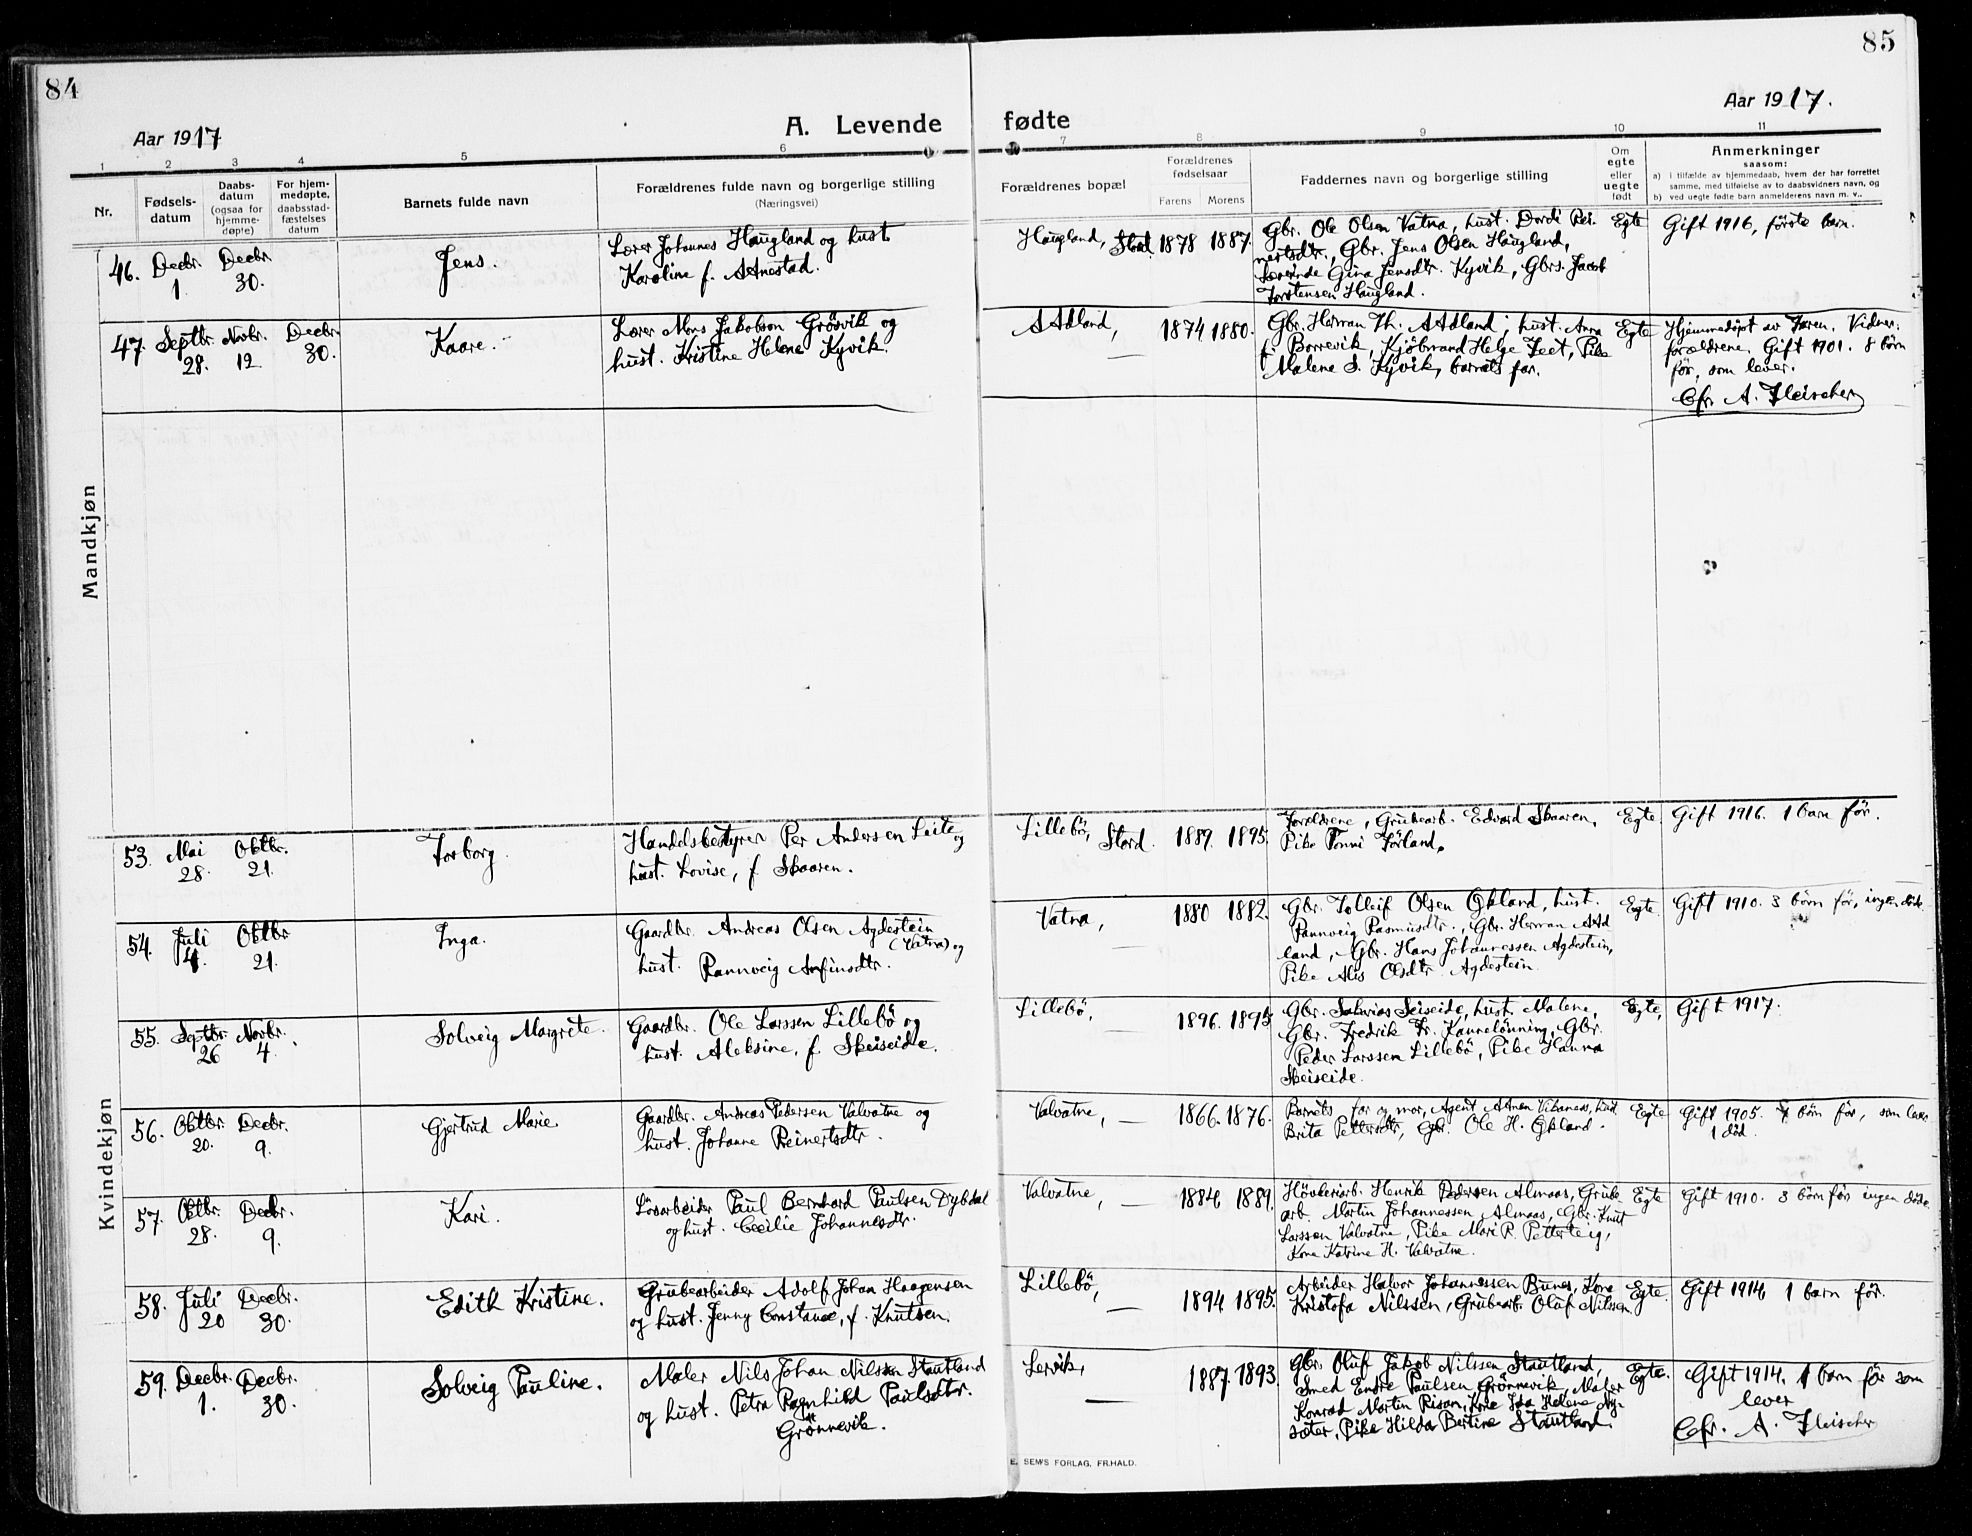 84
85
Aar 1917
A. Levende fødte
Aar 1917.
1 2 3 4 5 6 7 8 9 10 11
Nr.
Fødsels-
datum
Daabs-
datum
(ogsaa for
hjemme-
døpte)
For hjem-
medøpte,
daabsstad-
fæstelses
datum
Barnets fulde navn
Forældrenes fulde navn og borgerlige stilling
(Næringsvei)
Forældrenes bopæl
Forældrenes
fødselsaar
Farens Morens
Faddernes navn og borgerlige stilling
Om
egte
eller
uegte
født
Anmerkninger
saasom:
a) i tilfælde av hjemmedaab, hvem der har forrettet
samme, med tilføielse av to daabsvidners navn, og
b) ved uegte fødte barn anmelderens navn m. v..
Mandkjøn
46. Decbr. 1. Decbr. 30.
Jens.
Lærer Johannes Haugland og hust.
Karoline f. AAnestad.
Haugland, Stord. 1878 1887.
Gbr. Ole Olsen Vatna, hust. Dordi Rei-
nertsdtr., Gbr. Jens Olsen Haugland,
Lærerinde Gina Jensdtr. Kyvik, Gbrs. Jacob
Torstensen Haugland.
Egte
Gift 1916, förste barn.
47. Septbr. 28. Novbr. 12. Decbr. 30.
Kaare.
Lærer Mons Jakobson Grösvik og
hust. Kristine Helene Kyvik.
AAdland, — 1874 1880.
Gbr. Herman Th. AAdland, hust. Anna
f. Borrevik, Kjöbmand Helge Teet, Pike
Malene S. Kyvik, barnets far.
Egte
Hjemmedöpt av Faren. Vidner:
forældrene. Gift 1901. 8 börn
för, som lever.
Cfr. A. Fleischer
Kvindekjøn
53. Mai 28. Oktbr. 21.
Torborg.
Handelsbestyrer Per Andersen Leite og
hust. Lovise, f. Skaaren.
Lillebö, Stord. 1889. 1895.
Forældrene, Grubearb. Edvard Skaaren,
Pike Tonni Förland.
Egte.
Gift 1916. 1 barn för.
54. Juli 4. Oktbr. 21.
Inga.
Gaardbr. Andreas Olsen Agdestein
(Vatna) og
hust. Rannveig Anfinsdtr.
Vatna, — 1880 1882.
Gbr. Tolleif Olsen Økland, hust.
Rannveig Rasmusdtr., Gbr. Herman AAd
land, Gbr. Hans Johannessen Agdestein,
Pike Alis Olsdtr. Agdestein.
Egte.
Gift 1910. 3 börn för, ingen döde
55. Septbr. 26 Novbr. 4.
Solveig Margrete.
Gaardbr. Ole Larssen Lillebö og
hust. Aleksine, f. Skeiseide.
Lillebö, — 1896. 1895
Gbr. Sakarias Seiseide, hust. Malene,
Gbr. Fredrik Fr. Kannelönning, Gbr.
Peder Larssen Lillebö, Pike Hanna
Skeiseide.
Egte,
Gift 1917.
56. Oktbr. 20. Decbr. 9.
Gjertrud Marie
Gaardbr. Andreas Pedersen Valvatne og
hust. Johanne Reinertsdtr.
Valvatne, — 1866. 1876.
Barnets far og mor, Agent Vikanes, hust
Brita Pettersdtr, Gbr. Ole H. Økland.
Egte
Gift 1905. 7 börn för, som lever
1 död.
57. Oktbr. 28. Decbr. 9.
Kari.
Lösarbeider Paul Bernhard Paulsen Dybdal
og hust. Cecilie Johannesdtr.
Valvatne, — 1884 1889.
Hövleriarb. Henrik Pedersen Almaas, Grube-
arb. Martin Johannessen Almaas, Gbr. Knut
Larsson Valvatne, Pike Mari R. Petterteig,
Kone Katrine H. Valvatne.
Egte
Gift 1910. 3 börn för ingen döde.
58. Juli 20 Decbr. 30.
Edith Kristine.
Grubearbeider Adolf Johan Haagensen
og hust. Jenny Constance, f. Knutsen.
Lillebö, — 1894 1895.
Arbeider Halvor Johannessen Bunes, Kone
Kristofa Nilssen, Grubearb. Oluf Nilssen.
Egte.
Gift 1914 1 barn för.
59. Decbr. 1. Decbr. 30.
Solveig Pauline.
Maler Nils Johan Nilssen Stautland
og hust. Petra Ragnhild Paulsdtr.
Grönnevik.
Lervik, — 1887 1893.
Gbr. Oluf Jakob Nilssen Stautland,
Smed Endre Paulsen Grönnevik, Maler
Konrad Martin Risan, Kone Ida Helene Ny-
sæter, Pike Hilda Bertine Stautland.
Egte.
Gift 1914. 1 barn för som
lever
Cfr. A. Fleischer
E. SEM'S FORLAG, FR.HALD.